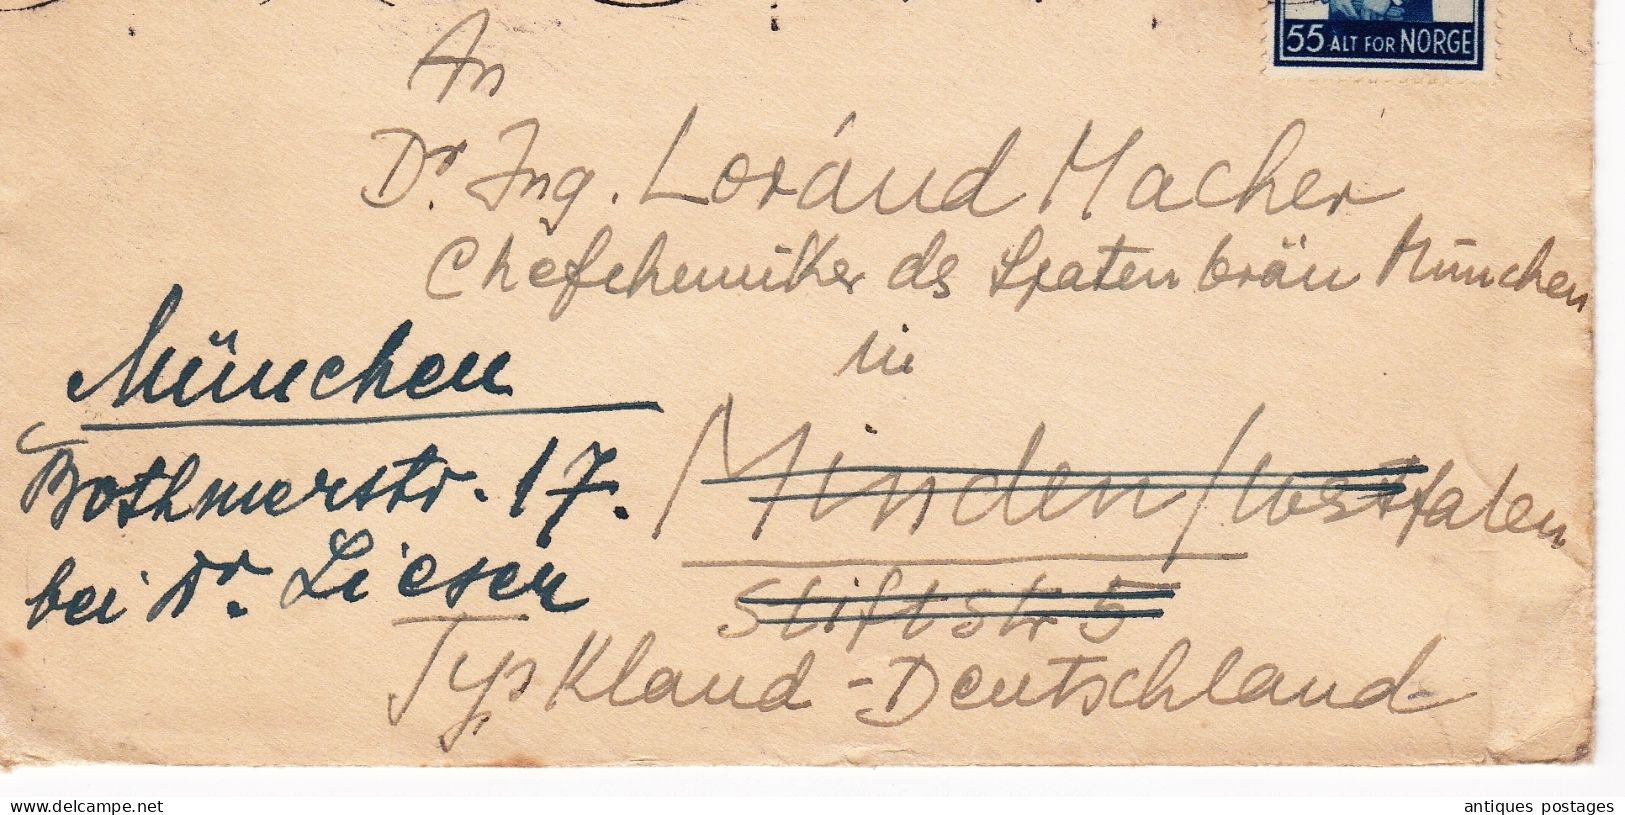 55 ALT FOR NORGE
An
Dr. Ing. Loránd Macher
Chefchemiker ds Spatenbräu München
in
Minden/Westfalen
Stiftstr 5
Tyskland - Deutschland
München
Bothmerstr. 17.
bei Dr. Lieser
delcampe.net
antiques postages